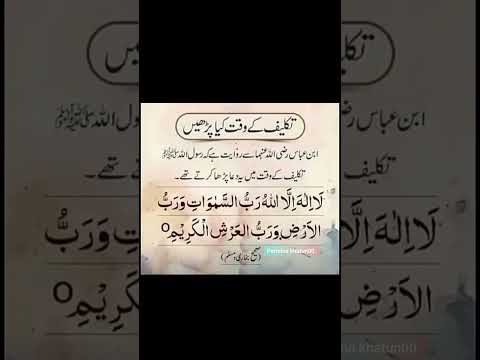 تکلیف کے وقت کیا پڑھیں
ابن عباس رضی اللہ عنہما سے روایت ہے کہ رسول اللہ ﷺ
تکلیف کے وقت میں یہ دعا پڑھا کرتے تھے۔
لَا اِلٰهَ اِلَّا اللهُ رَبُّ السَّمٰوَاتِ وَرَبُّ
الاَرْضِ وَرَبُّ العَرْشِ الْكَرِيْمِ
(صحیح بخاری و مسلم)